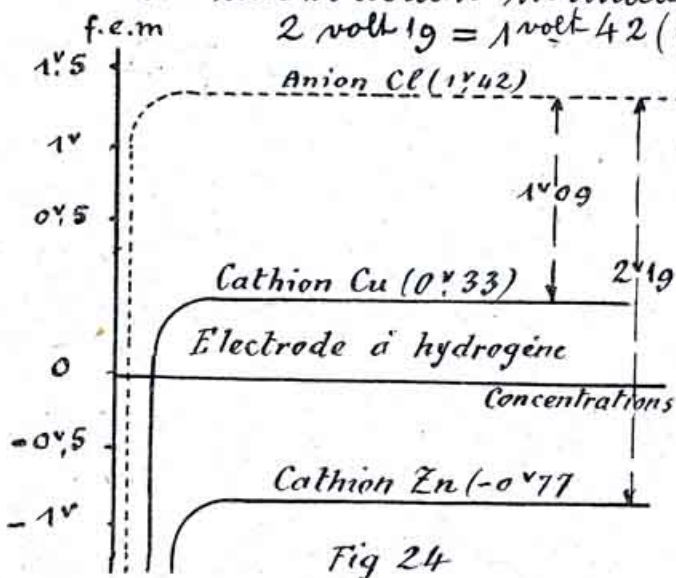 2 volt 19 = 1 volt 42 (
f.e.m
1v,5
Anion Cl (1v,42)
1v
1v09
0v,5
2v19
Cathion Cu (0v,33)
Electrode à hydrogéne
0
Concentrations
-0v,5
Cathion Zn (-0v77
-1v
Fig 24